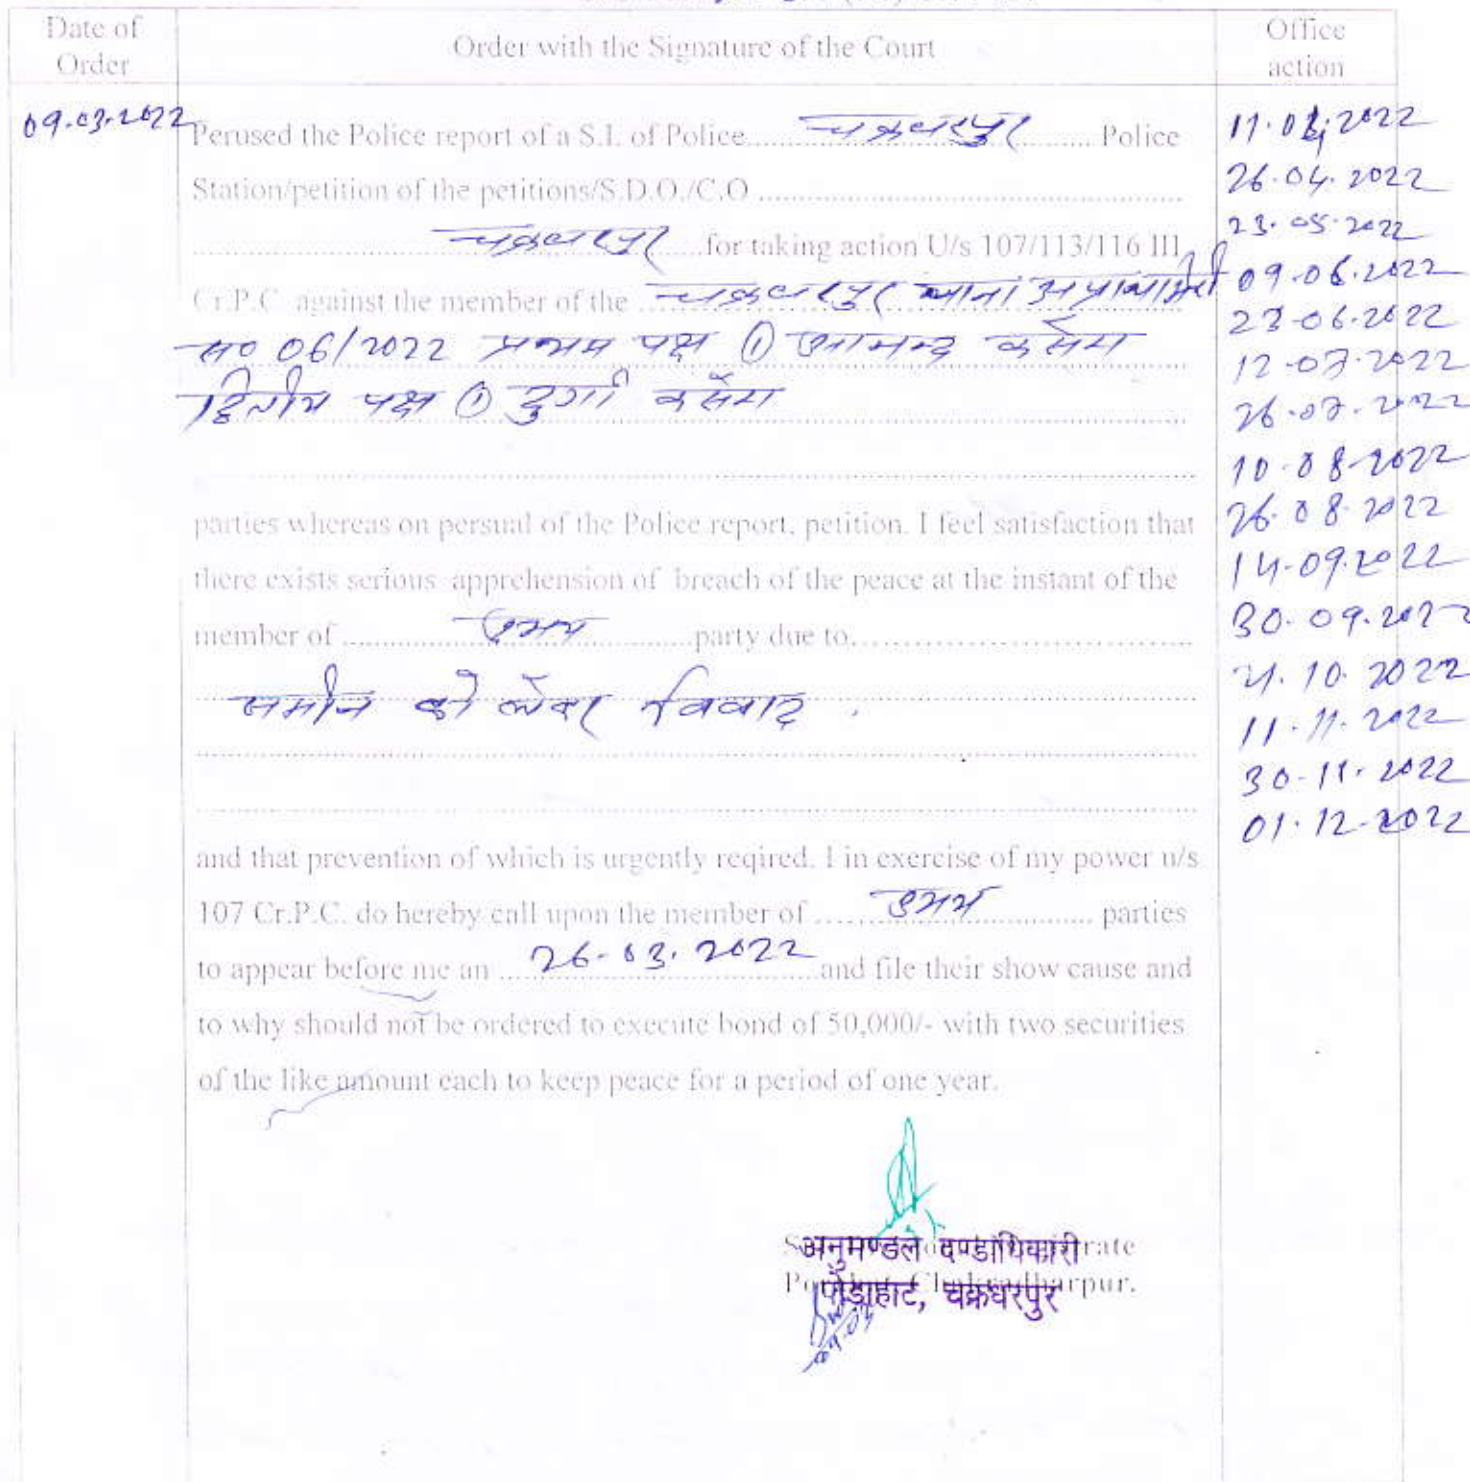 Date of
Order
Order with the Signature of the Court
Office
action
09.03.2022
Perused the Police report of a S.I. of Police चक्रधरपुर Police
Station/petition of the petitions/S.D.O./C.O
चक्रधरपुर for taking action U/s 107/113/116 III
Cr.P.C. against the member of the चक्रधरपुर थाना
सं० 06/2022 प्रथम पक्ष ①
द्वितीय पक्ष ① दुर्गा
parties whereas on persual of the Police report, petition. I feel satisfaction that
there exists serious apprehension of breach of the peace at the instant of the
member of उभय party due to
जमीन को लेकर विवाद .
and that prevention of which is urgently reqired. I in exercise of my power u/s
107 Cr.P.C. do hereby call upon the member of उभय parties
to appear before me an 26-03.2022 and file their show cause and
to why should not be ordered to execute bond of 50,000/- with two securities
of the like amount each to keep peace for a period of one year.
अनुमण्डल दण्डाधिकारी
पोड़ाहाट, चक्रधरपुर
Chakradharpur.
26.04.2022
23.05.2022
09.06.2022
23-06.2022
12-07.2022
26.07.2022
10-08-2022
26.08.2022
14-09.2022
30.09.2022
21.10.2022
11.11.2022
30-11.2022
01.12-2022